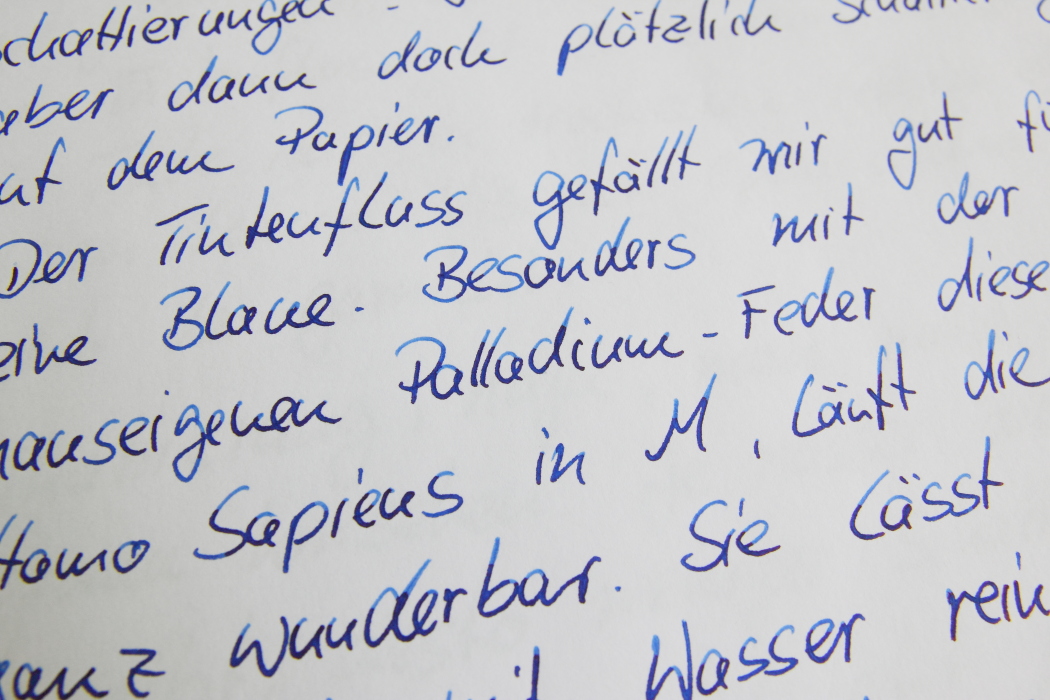 schattierungen -
aber dann doch plötzlich
auf dem Papier.
Der Tintenfluss gefällt mir gut für
eine Blaue. Besonders mit der
hauseigenen Palladium-Feder dieses
Homo Sapiens in M, läuft die
ganz wunderbar. Sie lässt
mit Wasser rein